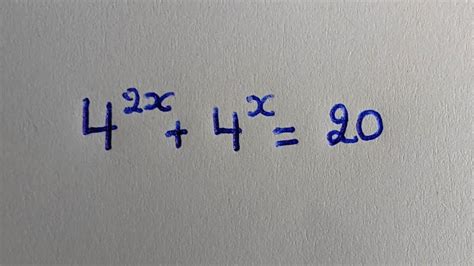 4²ˣ + 4ˣ = 20